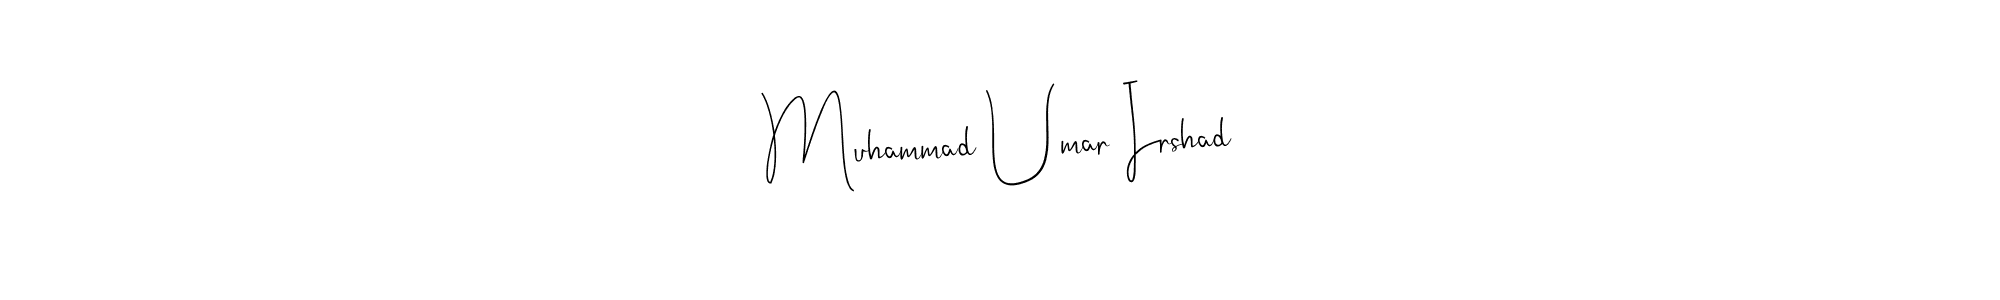 Muhammad Umar Irshad